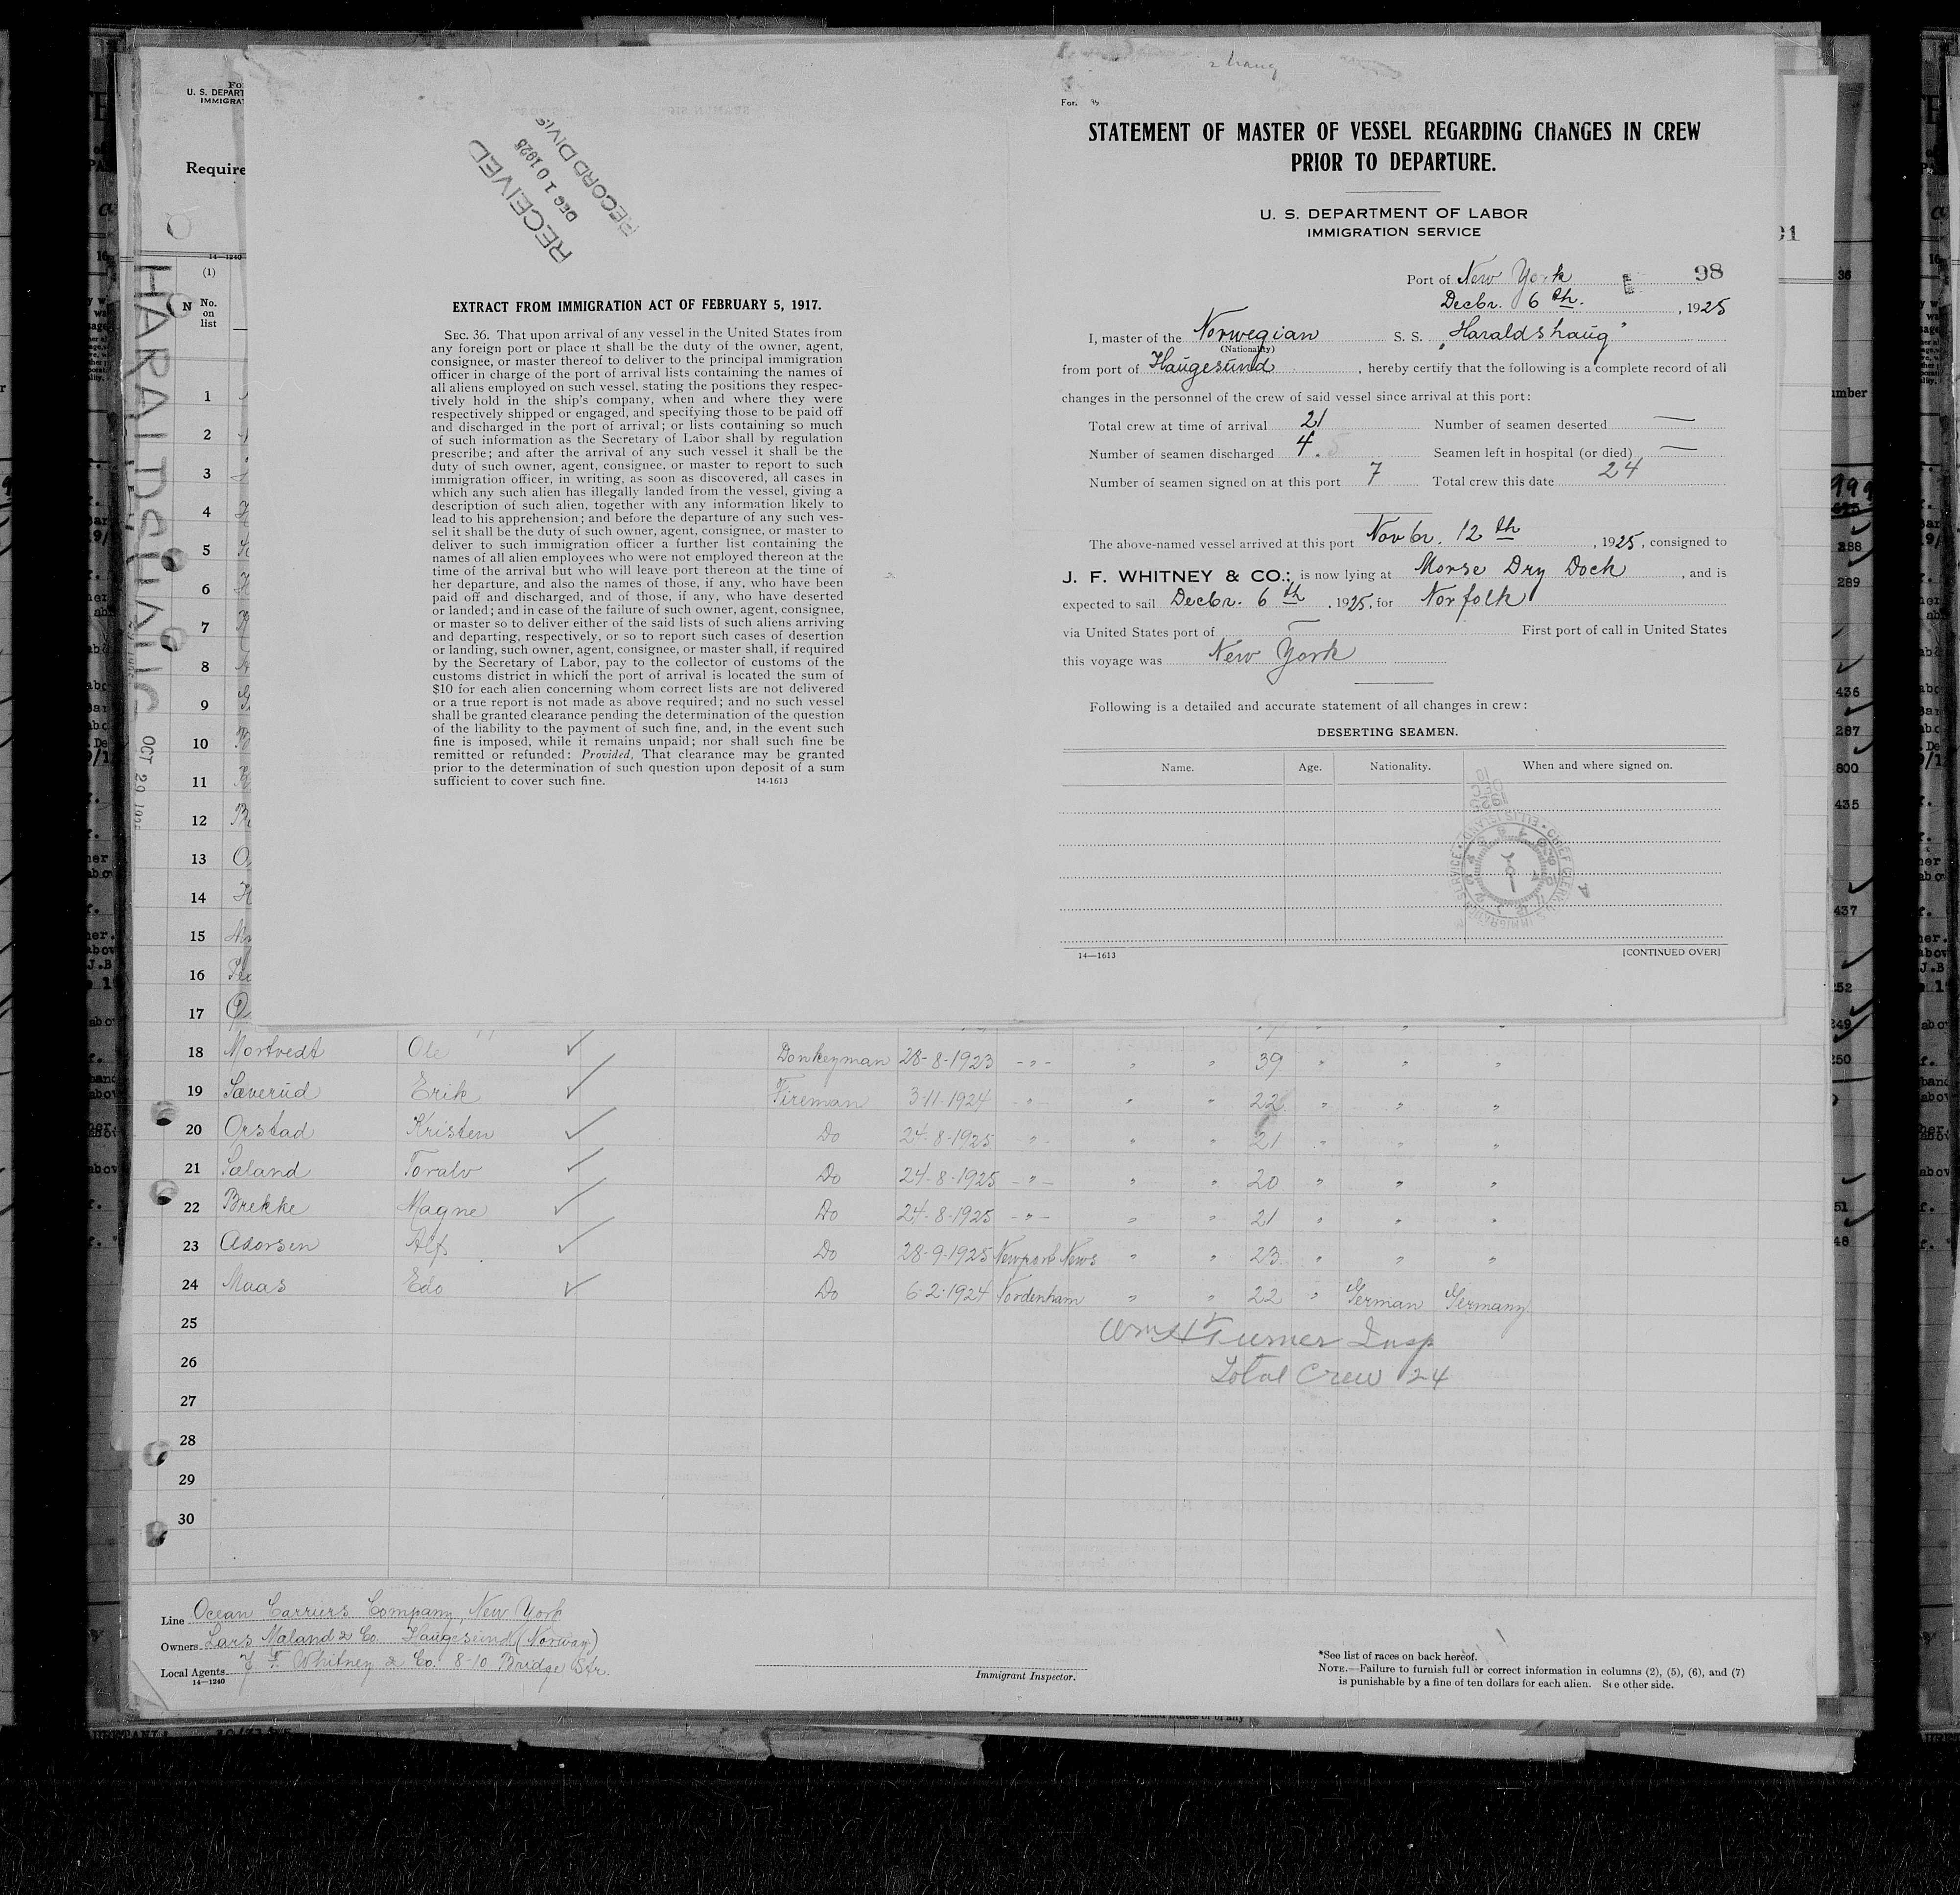 RECEIVED
DEC 10 1925
RECORD DIVIS
EXTRACT FROM IMMIGRATION ACT OF FEBRUARY 5, 1917.
SEC. 36. That upon arrival of any vessel in the United States from
any foreign port or place it shall be the duty of the owner, agent,
consignee, or master thereof to deliver to the principal immigration
officer in charge of the port of arrival lists containing the names of
all aliens employed on such vessel, stating the positions they respec-
tively hold in the ship's company, when and where they were
respectively shipped or engaged, and specifying those to be paid off
and discharged in the port of arrival; or lists containing so much
of such information as the Secretary of Labor shall by regulation
prescribe; and after the arrival of any such vessel it shall be the
duty of such owner, agent, consignee, or master to report to such
immigration officer, in writing, as soon as discovered, all cases in
which any such alien has illegally landed from the vessel, giving a
description of such alien, together with any information likely to
lead to his apprehension; and before the departure of any such ves-
sel it shall be the duty of such owner, agent, consignee, or master to
deliver to such immigration officer a further list containing the
names of all alien employees who were not employed thereon at the
time of the arrival but who will leave port thereon at the time of
her departure, and also the names of those, if any, who have been
paid off and discharged, and of those, if any, who have deserted
or landed; and in case of the failure of such owner, agent, consignee,
or master so to deliver either of the said lists of such aliens arriving
and departing, respectively, or so to report such cases of desertion
or landing, such owner, agent, consignee, or master shall, if required
by the Secretary of Labor, pay to the collector of customs of the
customs district in which the port of arrival is located the sum of
$10 for each alien concerning whom correct lists are not delivered
or a true report is not made as above required; and no such vessel
shall be granted clearance pending the determination of the question
of the liability to the payment of such fine, and, in the event such
fine is imposed, while it remains unpaid; nor shall such fine be
remitted or refunded: Provided, That clearance may be granted
prior to the determination of such question upon deposit of a sum
sufficient to cover such fine. 14-1613
STATEMENT OF MASTER OF VESSEL REGARDING CHANGES IN CREW
PRIOR TO DEPARTURE.
U. S. DEPARTMENT OF LABOR
IMMIGRATION SERVICE
Port of New York 98
Decbr. 6 th. , 1925
I, master of the Norwegian S. S. "Haraldshaug"
(Nationality)
from port of Haugesund , hereby certify that the following is a complete record of all
changes in the personnel of the crew of said vessel since arrival at this port:
Total crew at time of arrival 21 Number of seamen deserted —
Number of seamen discharged 4. Seamen left in hospital (or died) —
Number of seamen signed on at this port 7 Total crew this date 24
The above-named vessel arrived at this port Novbr. 12 th , 1925, consigned to
J. F. WHITNEY & CO.; is now lying at Morse Dry Dock , and is
expected to sail Decbr. 6 th , 1925, for Norfolk
via United States port of — First port of call in United States
this voyage was New York
Following is a detailed and accurate statement of all changes in crew:
DESERTING SEAMEN.
Name. Age. Nationality. When and where signed on.
14—1613 [CONTINUED OVER]
HARALDSHAUG OCT 29 1925
U. S. DEPART
IMMIGRA
Require
14—1240
(1)
No.
on
list
1
2
3
4
5
6
7
8
9
10
11
12
13
14
15
16
17
18 Mortvedt Ole Donkeyman 28-8-1923 -"- " " 39 " " "
19 Sæverud Erik Fireman 3-11-1924 -"- " " 22 " " "
20 Orstad Kristen Do 24-8-1925 -"- " " 21 " " "
21 Sæland Toralv Do 24-8-1925 -"- " " 20 " " "
22 Brekke Magne Do 24-8-1925 -"- " " 21 " " "
23 Adorsen Alf Do 28-9-1925 Newport News " " 23 " " "
24 Maas Edo Do 6-2-1924 Nordenham " " 22 " German Germany
25
Wm H Turner Insp
26
Total Crew 24
27
28
29
30
Line Ocean Carriers Company, New York
Owners Lars Maland & Co. Haugesund (Norway)
Local Agents J. F. Whitney & Co. 8-10 Bridge Str.
14—1240
Immigrant Inspector.
*See list of races on back hereof.
NOTE.—Failure to furnish full or correct information in columns (2), (5), (6), and (7)
is punishable by a fine of ten dollars for each alien. See other side.